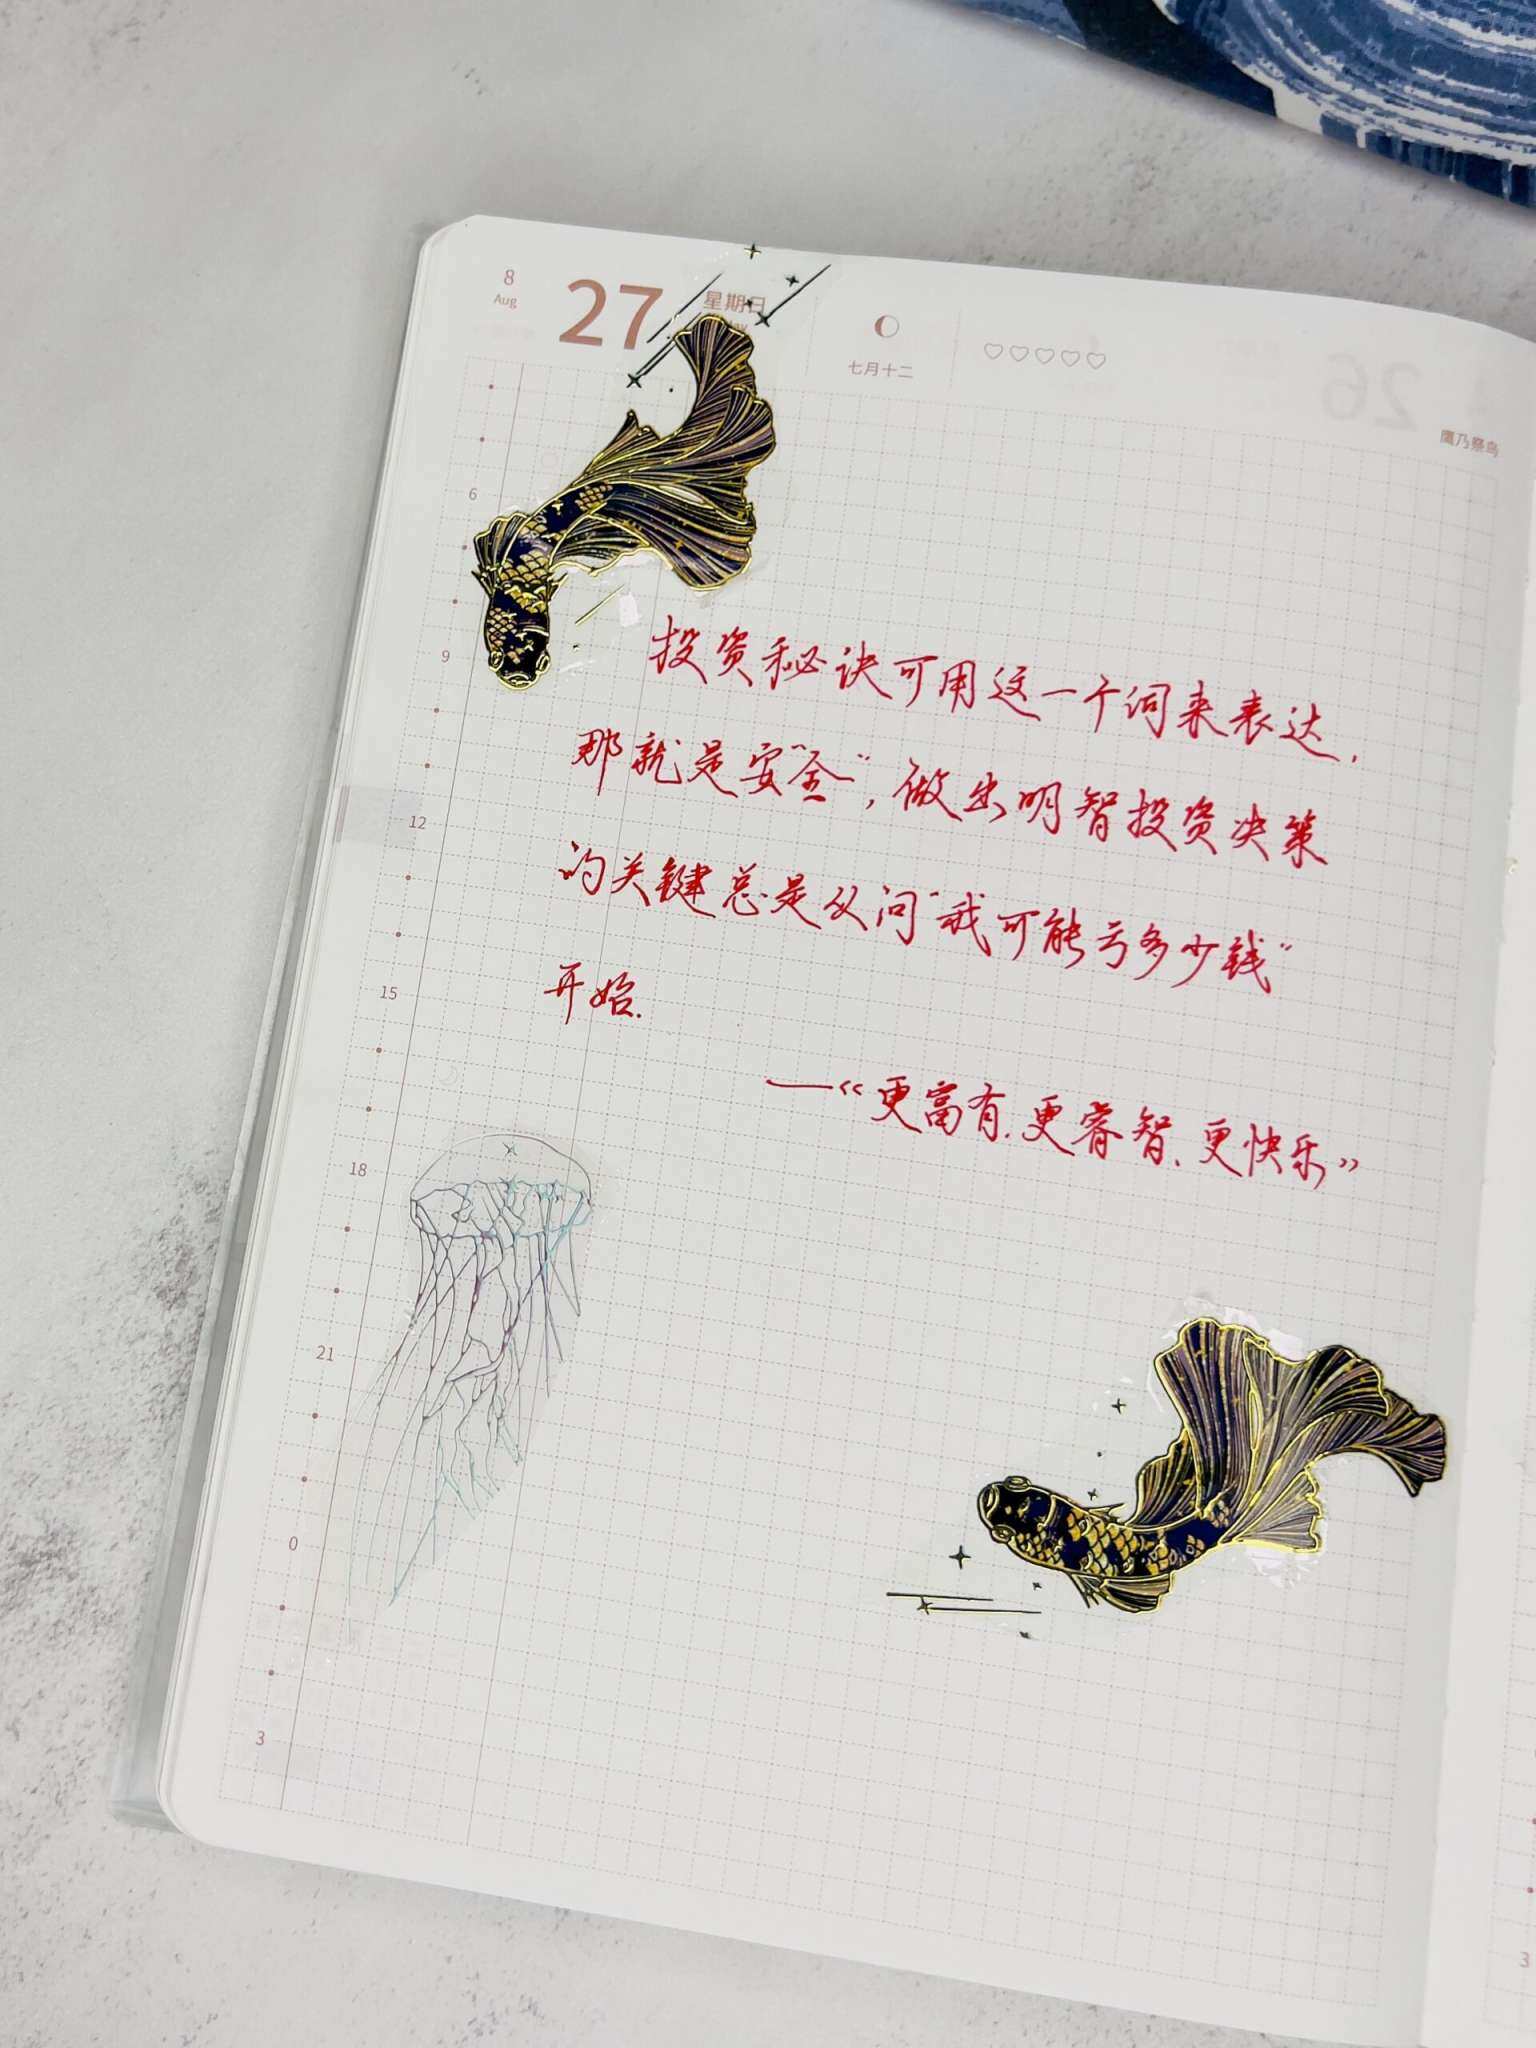 8
Aug
27
星期日
七月十二
26
鹰乃祭鸟
6
9
12
15
18
21
0
3
投资秘诀可用这一个词来表达,
那就是安“全”,做出明智投资决策
的关键总是从问“我可能亏多少钱”
开始.
——《更富有、更睿智、更快乐》
3